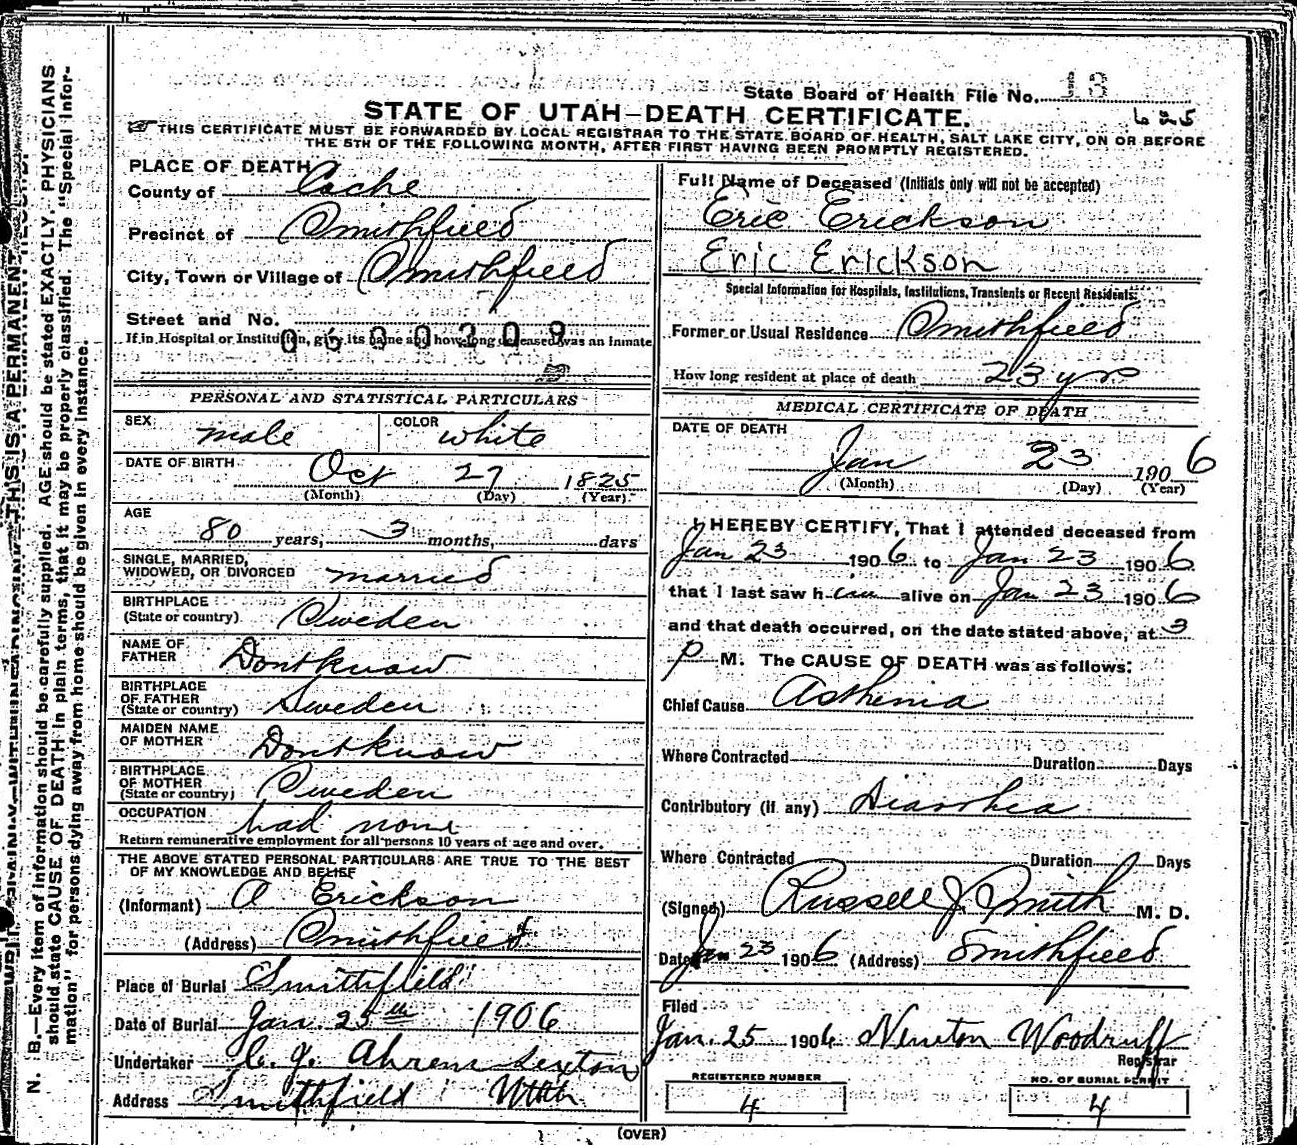 State Board of Health File No. 13
STATE OF UTAH—DEATH CERTIFICATE.
625
THIS CERTIFICATE MUST BE FORWARDED BY LOCAL REGISTRAR TO THE STATE BOARD OF HEALTH, SALT LAKE CITY, ON OR BEFORE
THE 5TH OF THE FOLLOWING MONTH, AFTER FIRST HAVING BEEN PROMPTLY REGISTERED.
PLACE OF DEATH
County of Cache
Precinct of Smithfield
City, Town or Village of Smithfield
Street and No.
0600309
If in Hospital or Institution, give its name and how long deceased was an inmate
PERSONAL AND STATISTICAL PARTICULARS
SEX male COLOR white
DATE OF BIRTH Oct 27 1825
(Month) (Day) (Year)
AGE
80 years, 3 months, days
SINGLE, MARRIED,
WIDOWED, OR DIVORCED married
BIRTHPLACE
(State or country) Sweden
NAME OF
FATHER Dont know
BIRTHPLACE
OF FATHER
(State or country) Sweden
MAIDEN NAME
OF MOTHER Dont know
BIRTHPLACE
OF MOTHER
(State or country) Sweden
OCCUPATION had none
Return remunerative employment for all persons 10 years of age and over.
THE ABOVE STATED PERSONAL PARTICULARS ARE TRUE TO THE BEST
OF MY KNOWLEDGE AND BELIEF
(Informant) A Erickson
(Address) Smithfield
Place of Burial Smithfield
Date of Burial Jan. 25th 1906
Undertaker C. J. Ahrens Sexton
Address Smithfield Utah
Full Name of Deceased (Initials only will not be accepted)
Eric Erickson
Eric Erickson
Special Information for Hospitals, Institutions, Transients or Recent Residents:
Former or Usual Residence Smithfield
How long resident at place of death 23 yrs
MEDICAL CERTIFICATE OF DEATH
DATE OF DEATH
Jan 23 1906
(Month) (Day) (Year)
I HEREBY CERTIFY, That I attended deceased from
Jan 23 1906 to Jan 23 1906
that I last saw him alive on Jan 23 1906
and that death occurred, on the date stated above, at 3
P M. The CAUSE OF DEATH was as follows:
Chief Cause Asthenia
Where Contracted Duration Days
Contributory (if any) Diarrhea
Where Contracted Duration Days
(Signed) Russell J. Smith M. D.
Date Jan 23 1906 (Address) Smithfield
Filed
Jan. 25 1906 Newton Woodruff
Registrar
REGISTERED NUMBER
4
NO. OF BURIAL PERMIT
4
(OVER)
N. B.—Every item of information should be carefully supplied. AGE should be stated EXACTLY. PHYSICIANS
should state CAUSE OF DEATH in plain terms, that it may be properly classified. The "Special Infor-
mation" for persons dying away from home should be given in every instance.